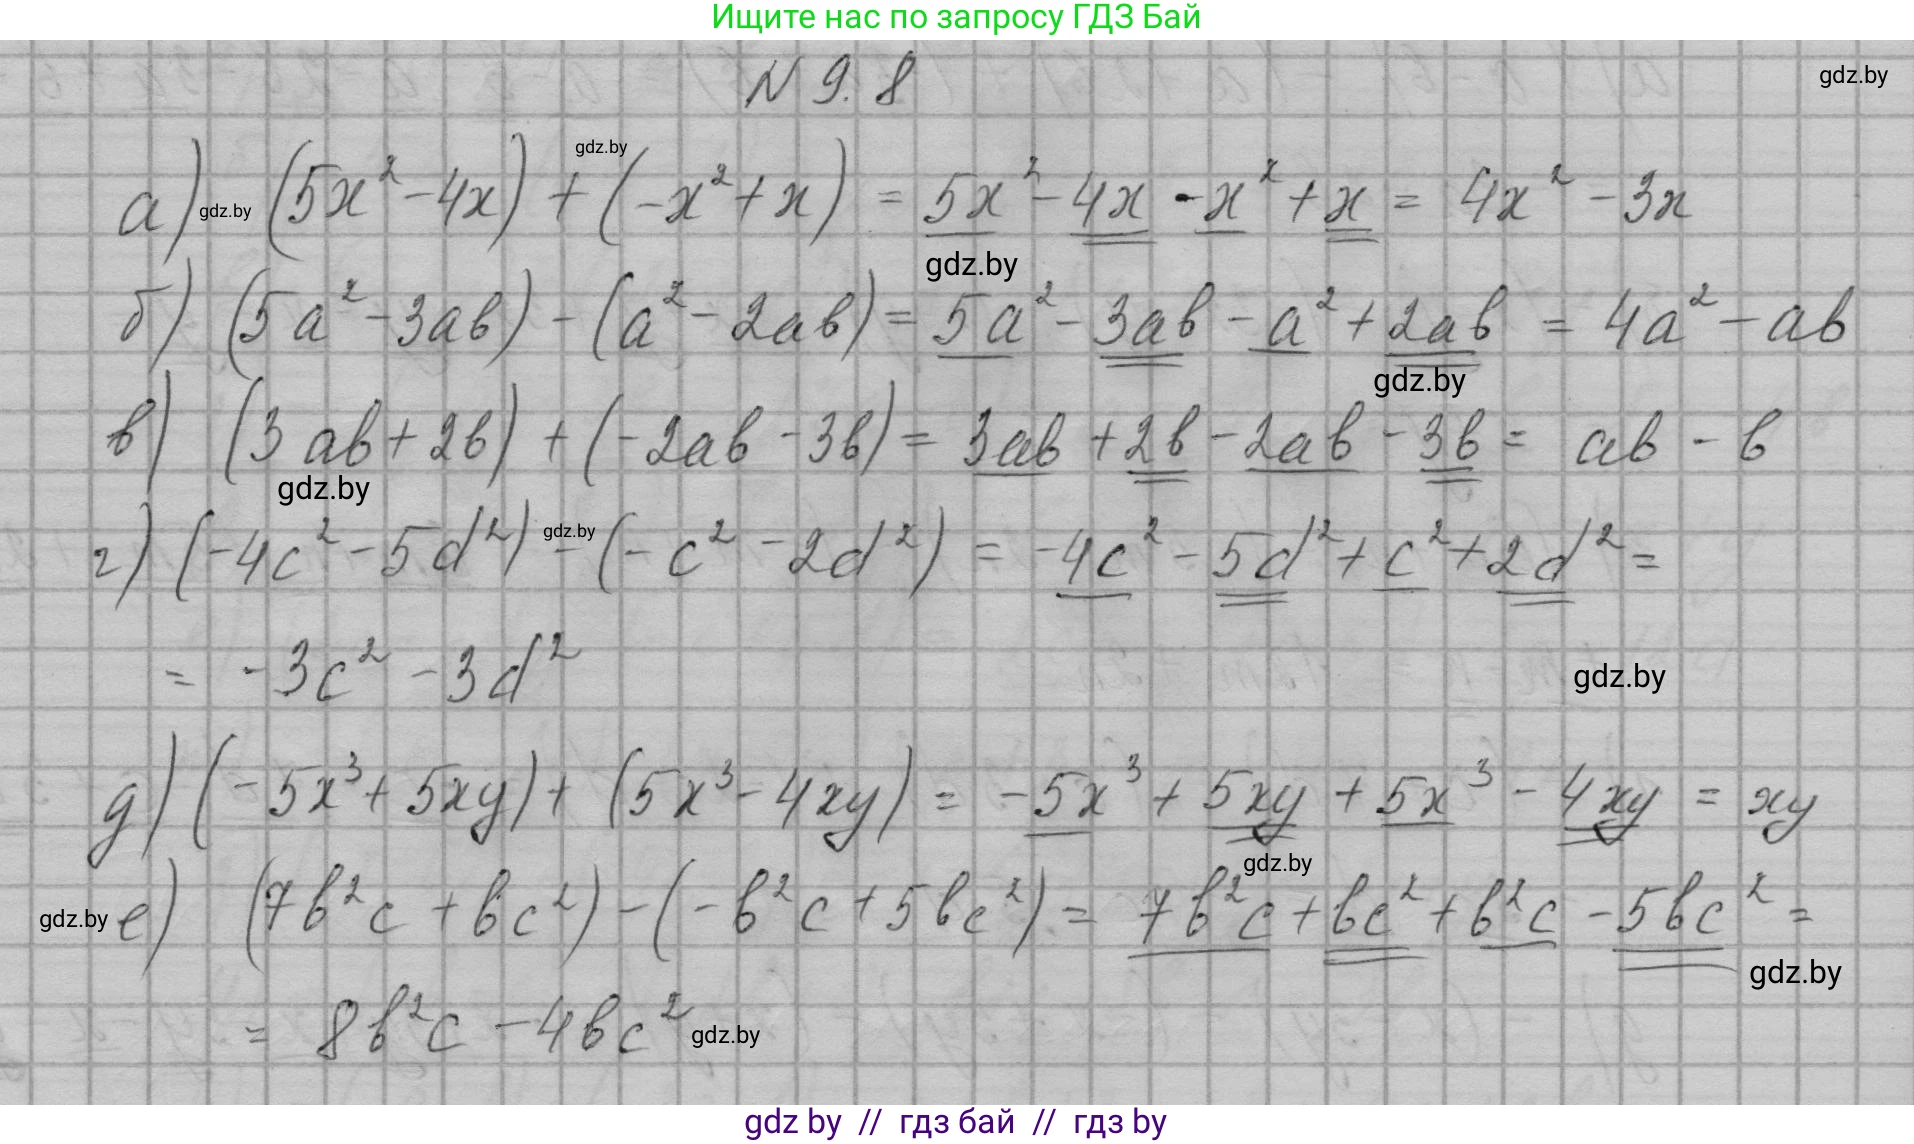 Ищите нас по запросу ГДЗ Бай
N 9. 8
gdz.by
gdz.by
а) gdz.by (5x² - 4x) + (-x² + x) = 5x² - 4x - x² + x = 4x² - 3x
gdz.by
б) (5a² - 3ab) - (a² - 2ab) = 5a² - 3ab - a² + 2ab = 4a² - ab
gdz.by
в) (3ab + 2b) + (-2ab - 3b) = 3ab + 2b - 2ab - 3b = ab - b
gdz.by
gdz.by
г) (-4c² - 5d²) - (-c² - 2d²) = -4c² - 5d² + c² + 2d² =
= -3c² - 3d²
gdz.by
д) (-5x³ + 5xy) + (5x³ - 4xy) = -5x³ + 5xy + 5x³ - 4xy = xy
gdz.by
gdz.by е) (7b²c + bc²) - (-b²c + 5bc²) = 7b²c + bc² + b²c - 5bc² =
gdz.by
= 8b²c - 4bc² gdz.by
gdz by // гдз бай // гдз by